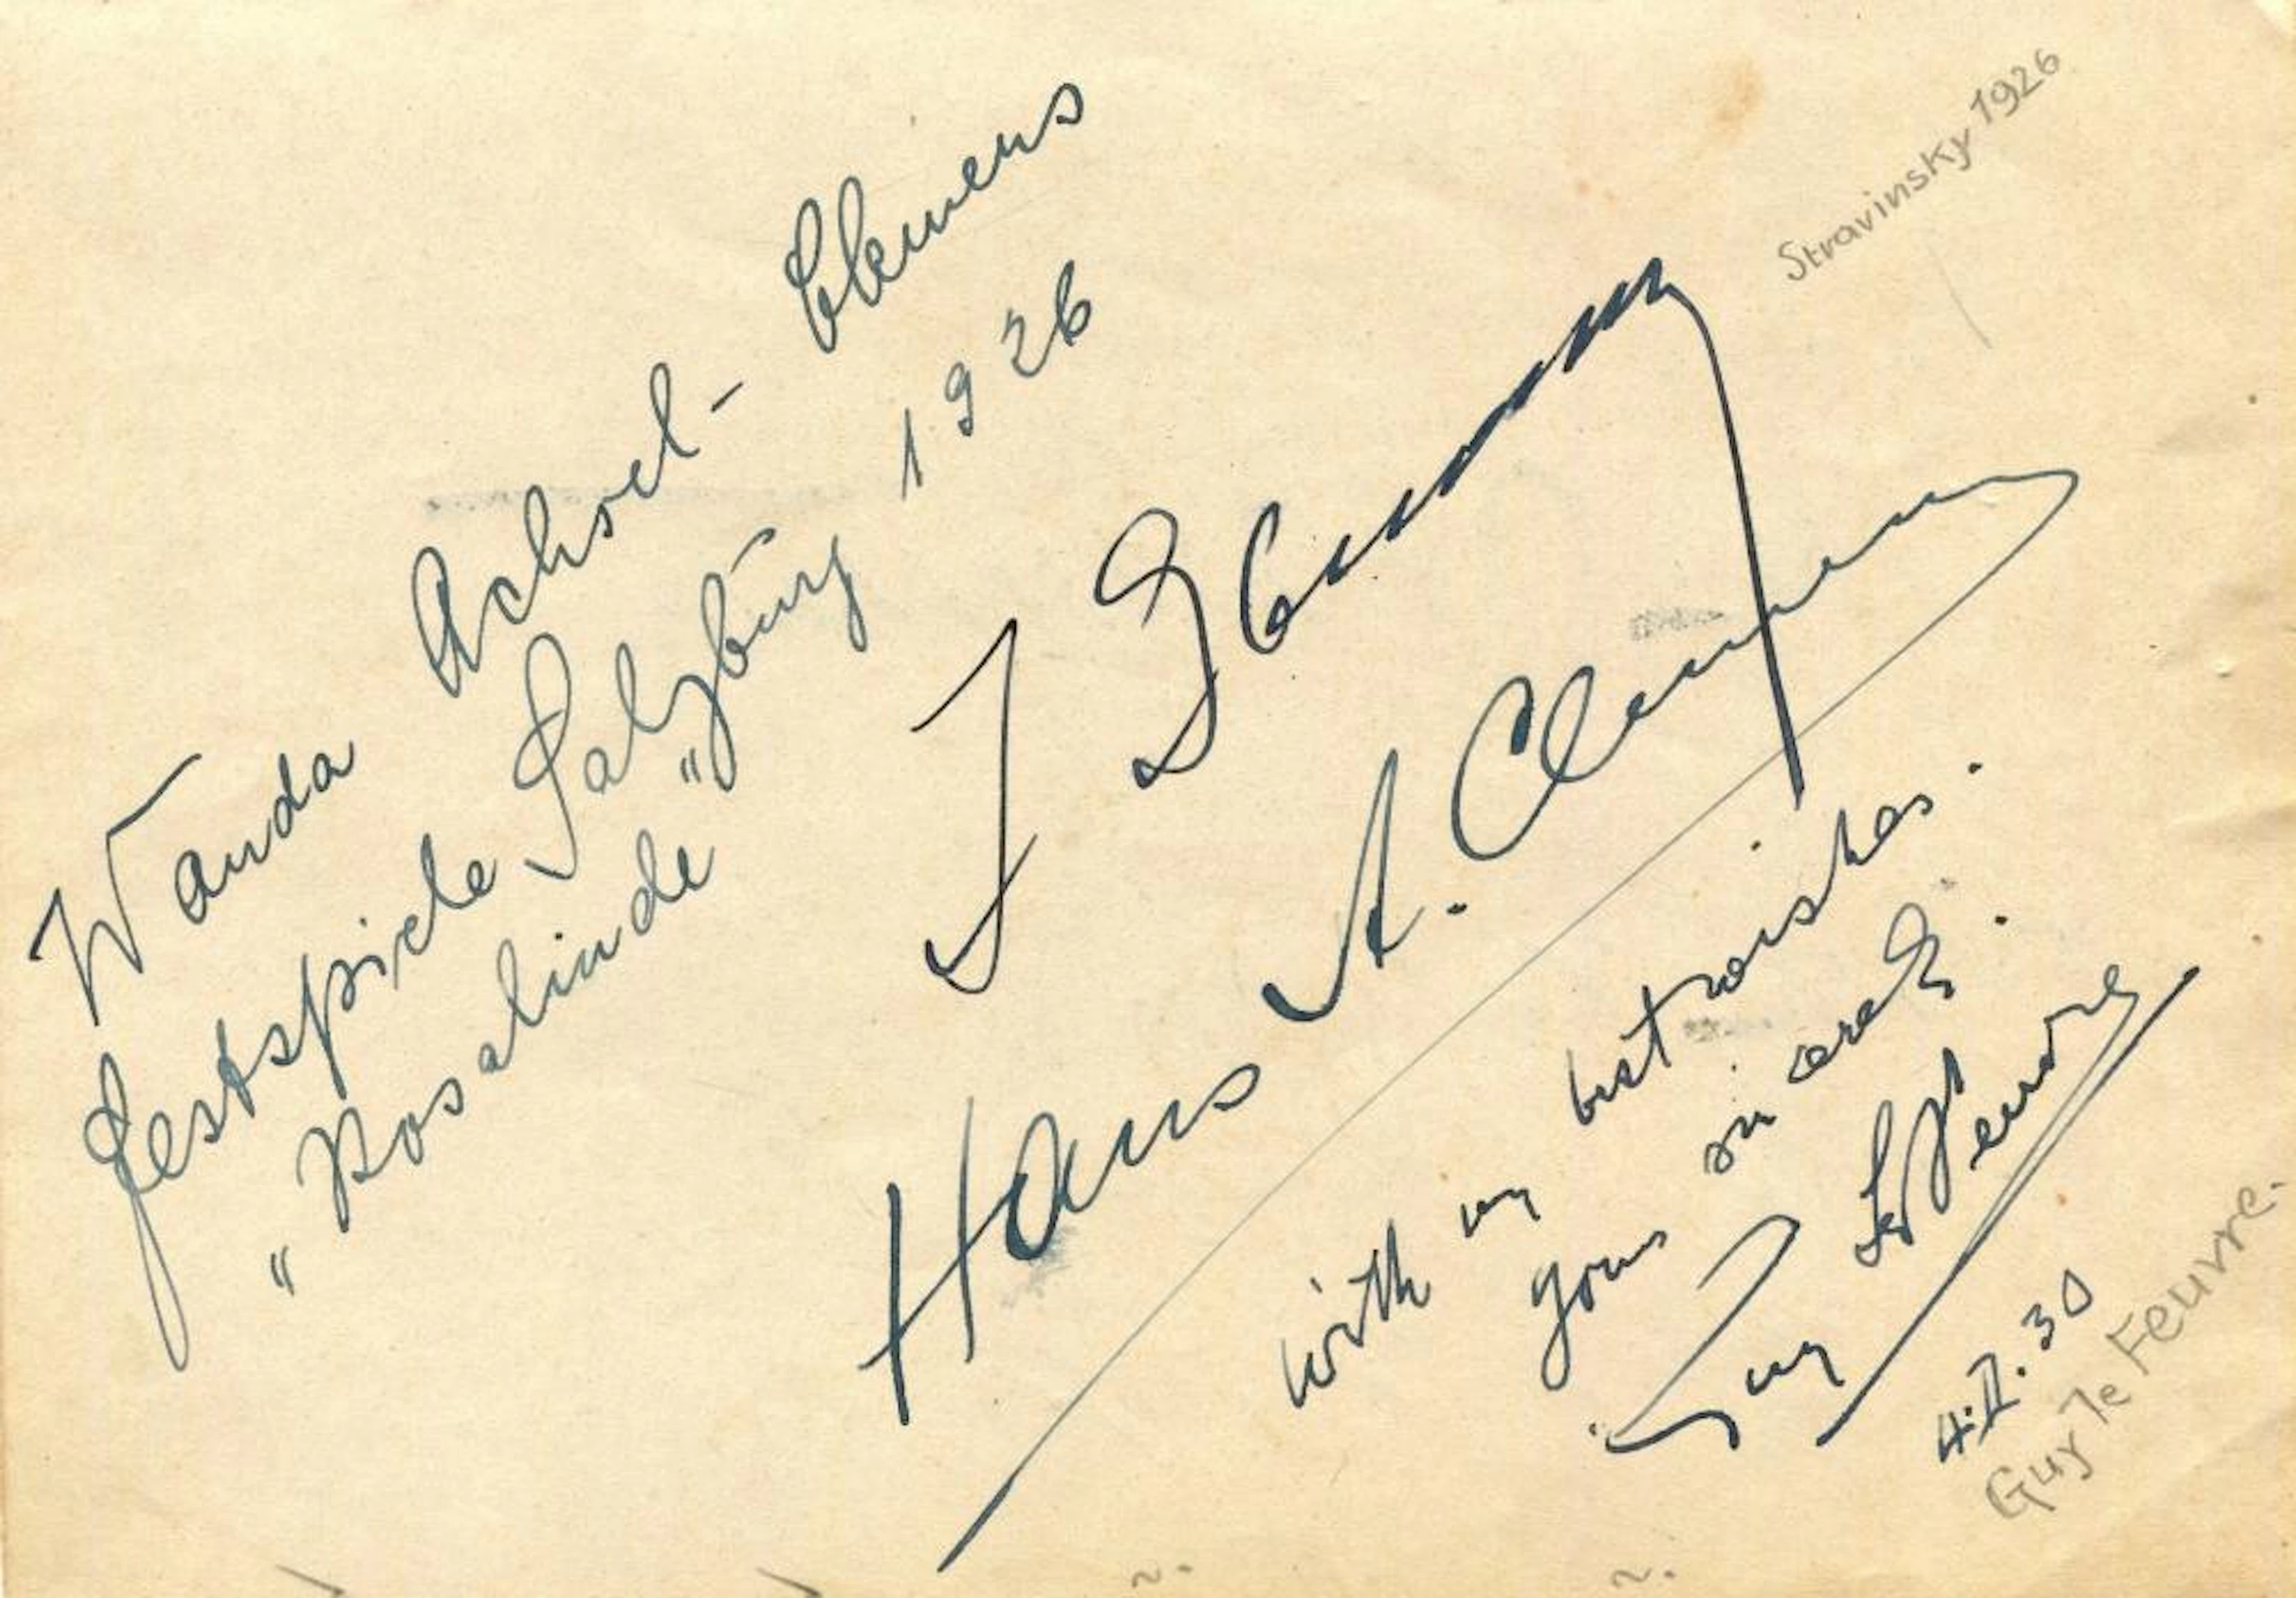 Wanda Achsel-Clemens
Festspiele Salzburg 1926
"Rosalinde"
Stravinsky 1926
Hans H. Clemens
with my best wishes.
yours
Guy Le Feuvre
4.II.30
Guy le Feuvre.